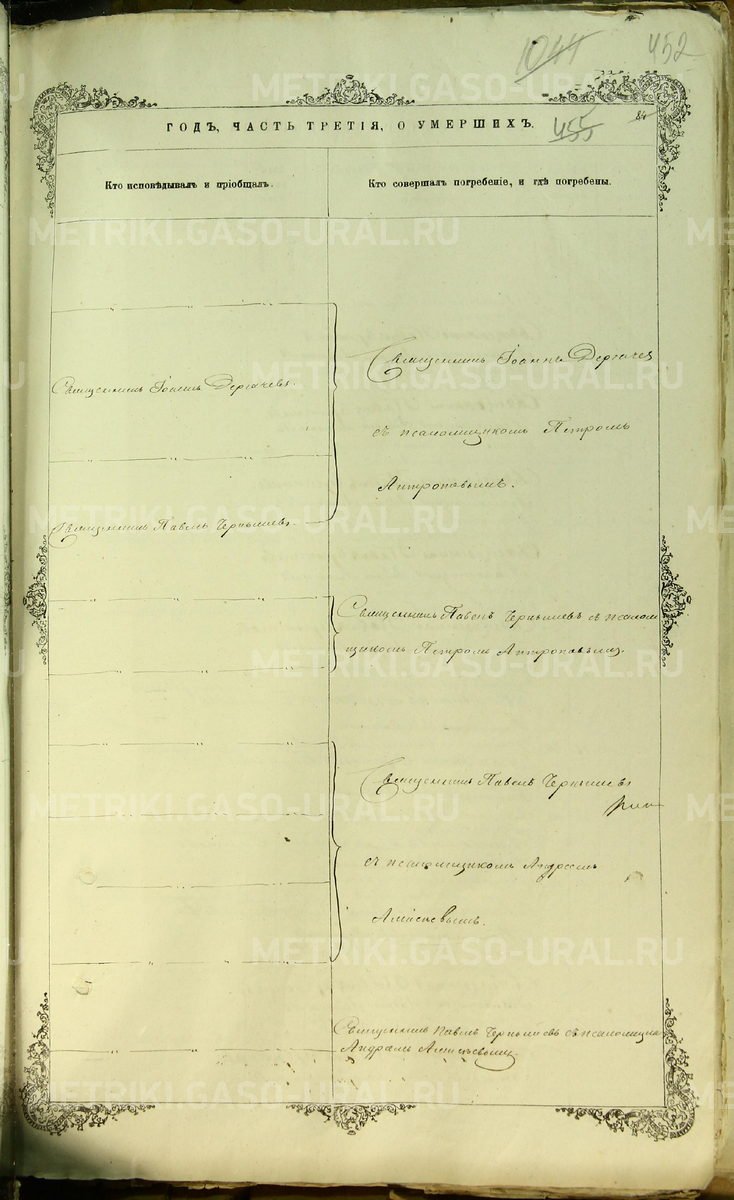 1044
452
455
84
ГОДЪ, ЧАСТЬ ТРЕТІЯ, О УМЕРШИХЪ.
Кто исповѣдывалъ и пріобщалъ.
Кто совершалъ погребеніе, и гдѣ погребены.
Священникъ Іоаннъ Дергачевъ.
Священникъ Павелъ Чернышевъ.
Священникъ Іоаннъ Дергачев
съ псаломщикомъ Петромъ
Антроповымъ.
Священникъ Павелъ Чернышевъ съ псалом
щикомъ Петромъ Антроповымъ.
Священникъ Павелъ Чернышевъ
съ псаломщикомъ Андреемъ
Священникъ Павелъ Чернышевъ съ псаломщик
METRIKI.GASO-URAL.RU